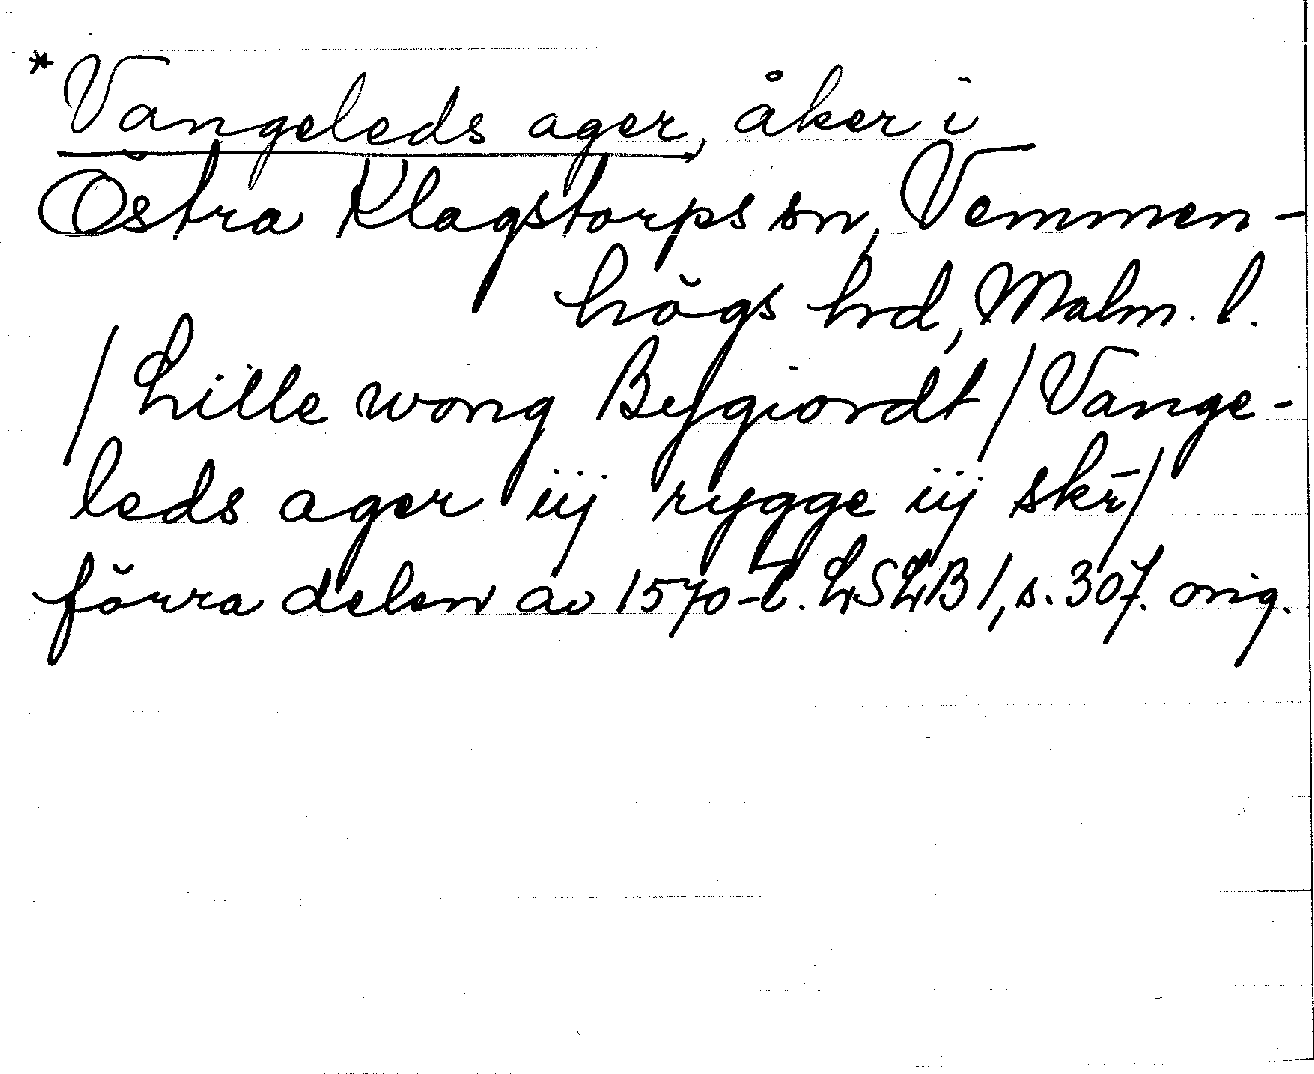 *Vangeleds ager, åker i
Östra Klagstorps sn, Vemmen-
högs hrd, Malm. l.
/ Lille wong Bygiordt / Vange-
leds ager iij rygge iij skr̄ /
förra delen av 1570-t. LSLB 1, s. 307. orig.